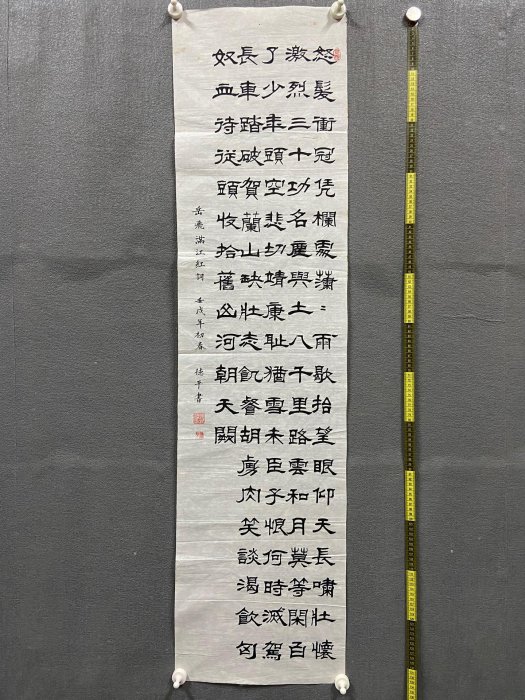 怒髮衝冠凭欄處瀟〻雨歇抬望眼仰天長嘯壯懷
激烈三十功名塵與土八千里路雲和月莫等閑百
了少年頭空悲切靖康耻猶雪未臣子恨何時滅駕
長車踏破賀蘭山缺壯志飢餐胡虜肉笑談渴飲匈
奴血待從頭收拾舊山河朝天闕
岳飛滿江紅詞 壬戌年初春 德平書